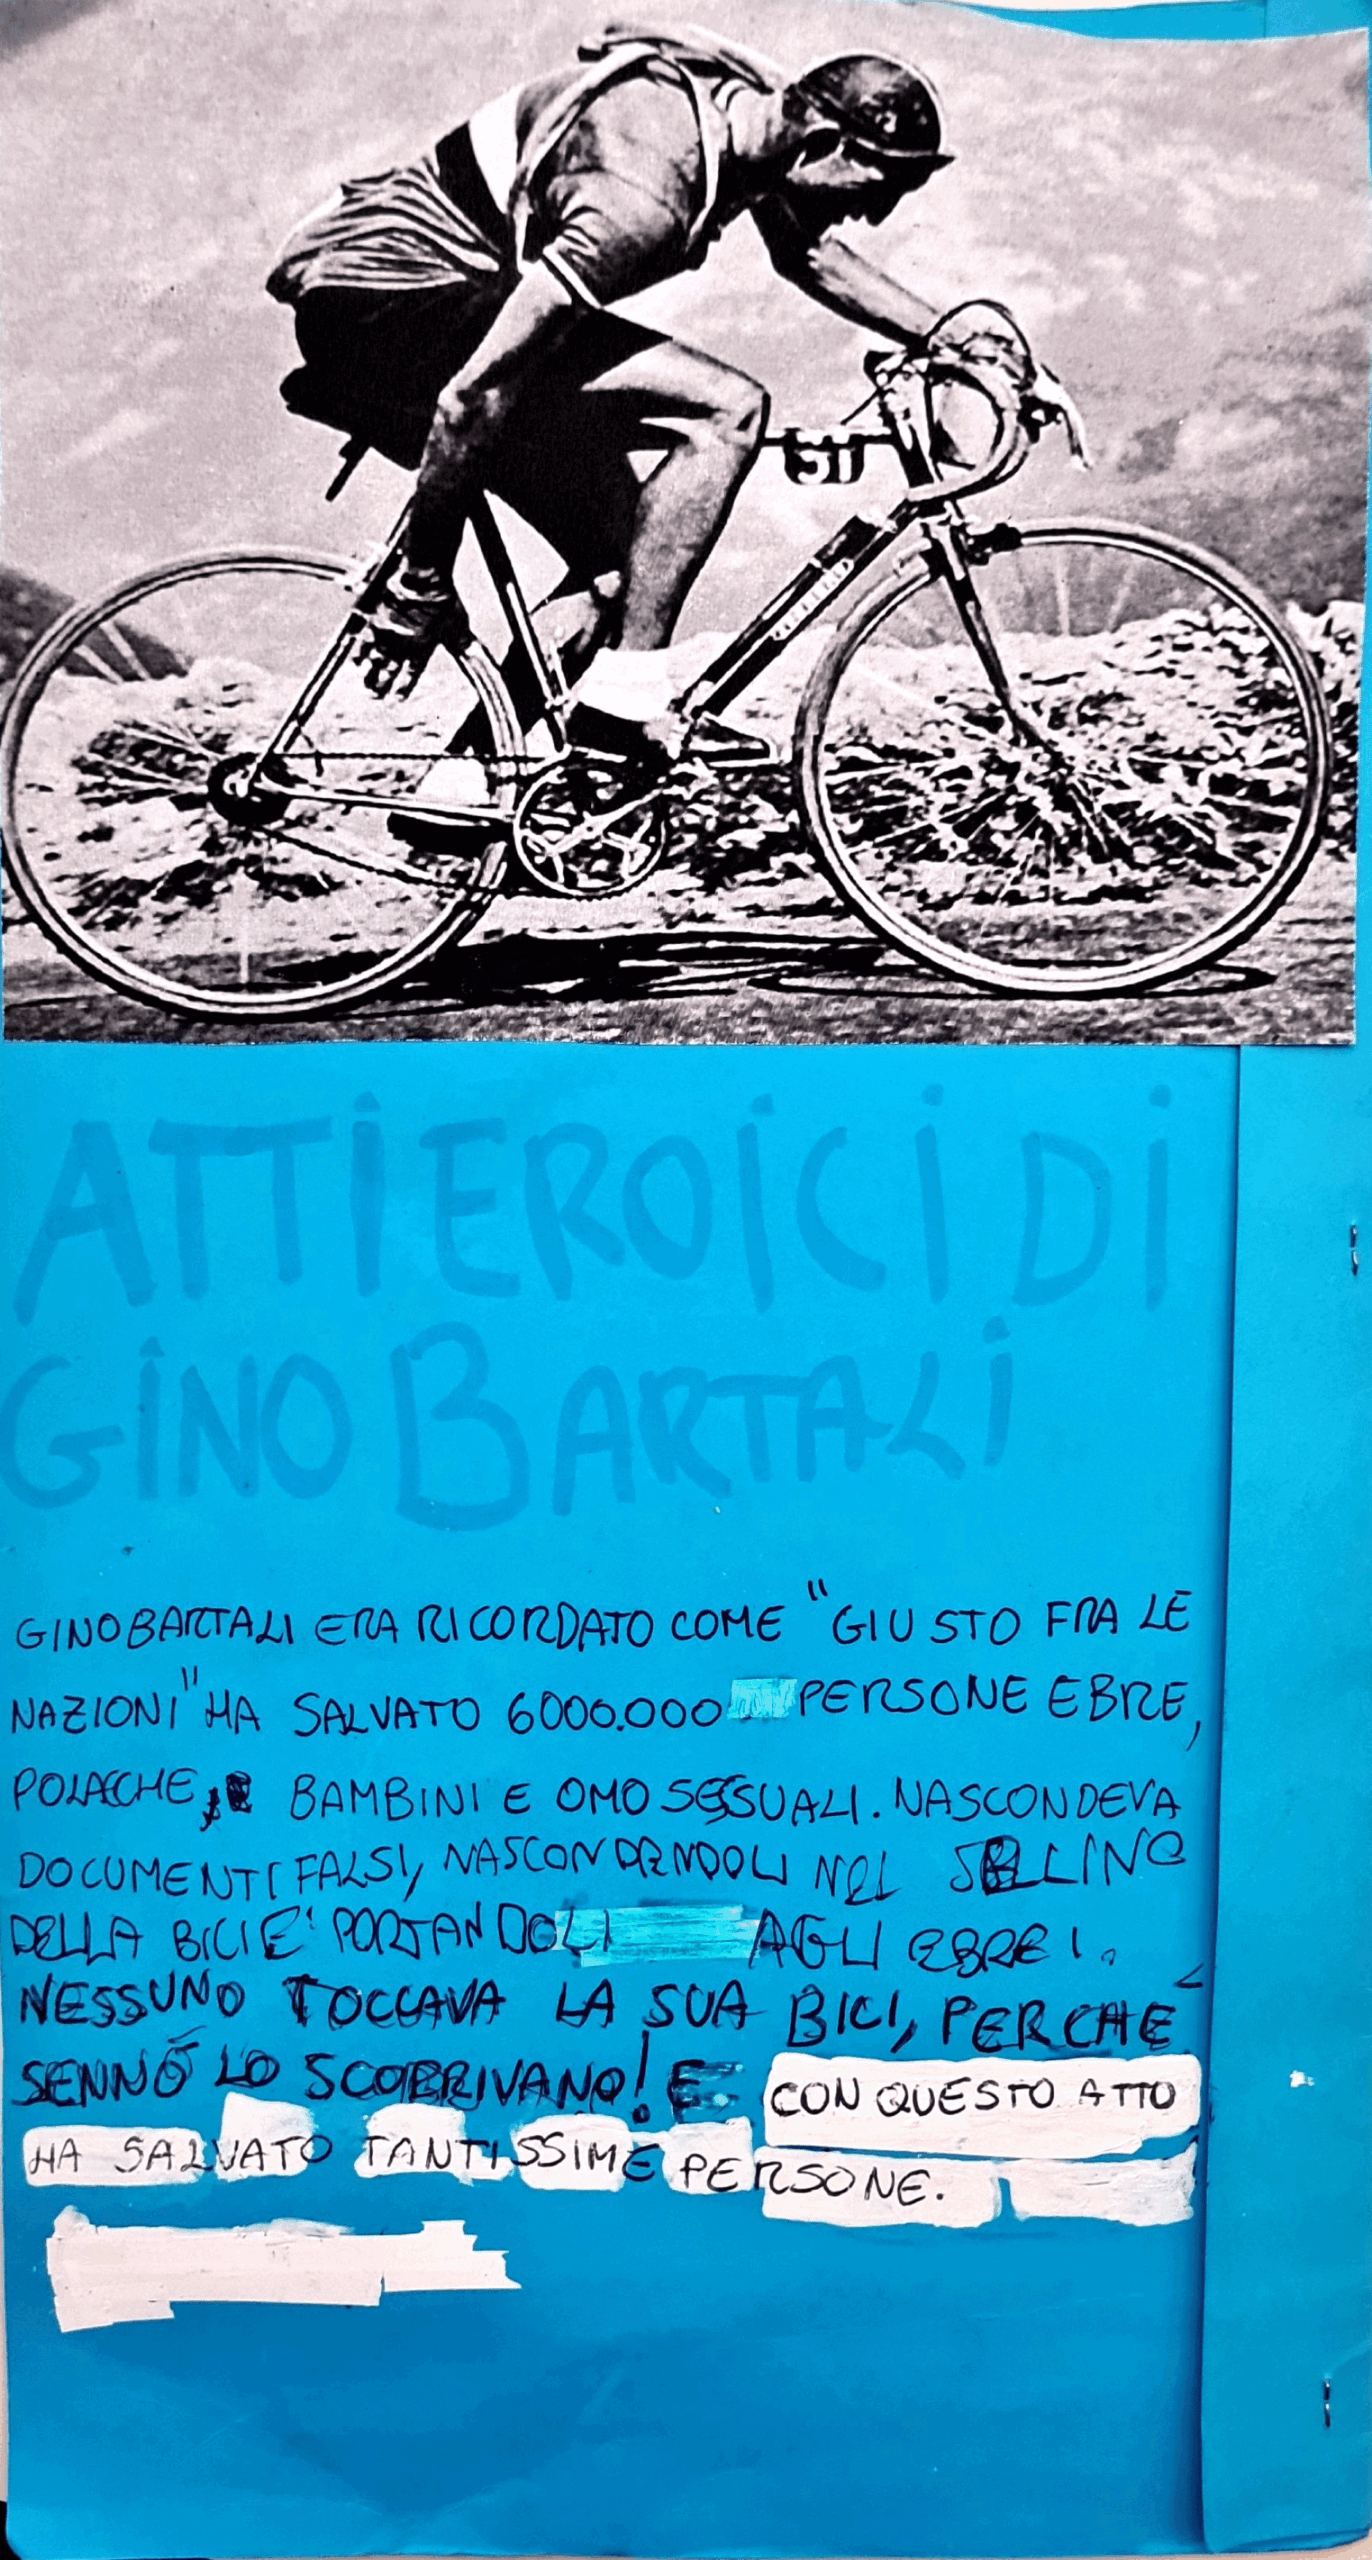 51
ATTI EROICI DI
GINO BARTALI
GINO BARTALI ERA RICORDATO COME "GIUSTO FRA LE
NAZIONI" HA SALVATO 6000.000 PERSONE EBRE,
POLACCHE, BAMBINI E OMOSESSUALI. NASCONDEVA
DOCUMENTI FALSI, NASCONDENDOLI NEL SELLINO
DELLA BICI E PORTANDOLI AGLI EBREI.
NESSUNO TOCCAVA LA SUA BICI, PERCHÉ
SENNÒ LO SCOPRIVANO! E CON QUESTO ATTO
HA SALVATO TANTISSIME PERSONE.